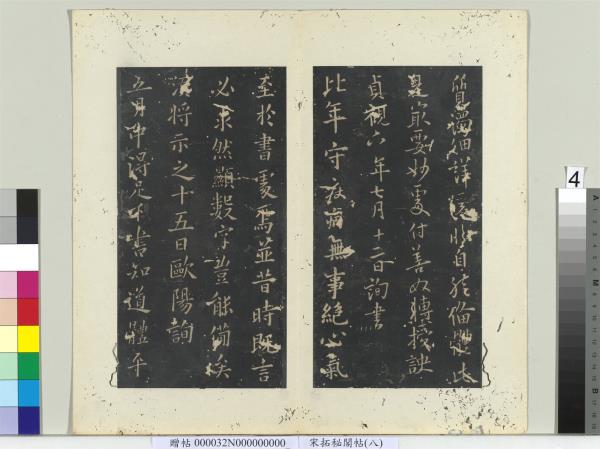 質濃細詳緩臨自然備體此
是最要妙處付善奴轉授訣
貞觀六年七月十二日詢書
比年守疾病無事絕心氣
至於書處焉並昔時既言
必不然顯數字豈能備矣
當將示之十五日歐陽詢
五月中得足下書知道體平
4
贈帖 000032N000000000_ 宋拓祕閣帖(八)